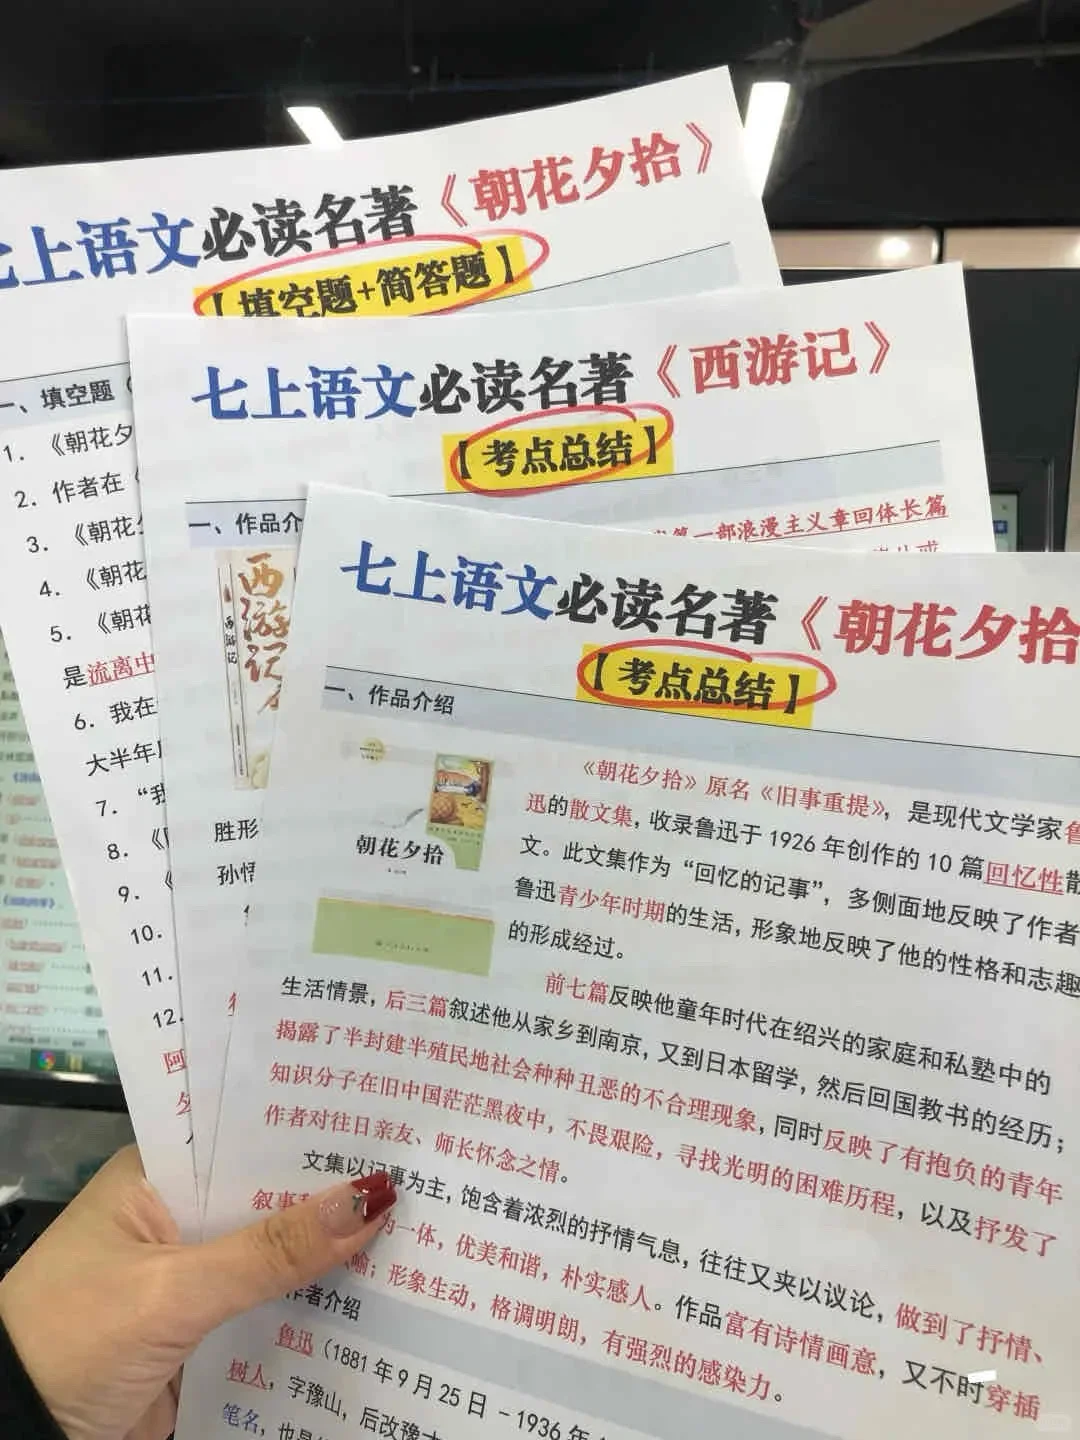 七上语文必读名著《朝花夕拾》
【填空题+简答题】
一、填空题
1. 《朝花夕
2. 作者在
3. 《朝花
4. 《朝花
5. 《朝花
是流离中
6. 我在
大半年
7. “我
8. 《
9. 《
10.
11.
12.
阿
七上语文必读名著《西游记》
【考点总结】
一、作品介
第一部浪漫主义章回体长篇
西游记
西游记
胜形
孙悟
七上语文必读名著《朝花夕拾
【考点总结】
一、作品介绍
朝花夕拾
《朝花夕拾》原名《旧事重提》，是现代文学家鲁
迅的散文集，收录鲁迅于 1926 年创作的 10 篇回忆性散
文。此文集作为“回忆的记事”，多侧面地反映了作者
鲁迅青少年时期的生活，形象地反映了他的性格和志趣
的形成经过。
前七篇反映他童年时代在绍兴的家庭和私塾中的
生活情景，后三篇叙述他从家乡到南京，又到日本留学，然后回国教书的经历；
揭露了半封建半殖民地社会种种丑恶的不合理现象，同时反映了有抱负的青年
知识分子在旧中国茫茫黑夜中，不畏艰险，寻找光明的困难历程，以及抒发了
作者对往日亲友、师长怀念之情。
文集以记事为主，饱含着浓烈的抒情气息，往往又夹以议论，做到了抒情、
叙事 为一体，优美和谐，朴实感人。作品富有诗情画意，又不时穿插
喻；形象生动，格调明朗，有强烈的感染力。
作者介绍
鲁迅（1881 年 9 月 25 日 - 1936 年
树人，字豫山，后改豫
笔名，也是